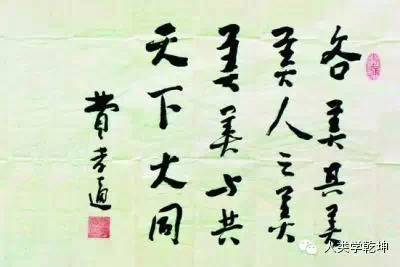 各美其美
美人之美
美美与共
天下大同
费孝通
人类学乾坤